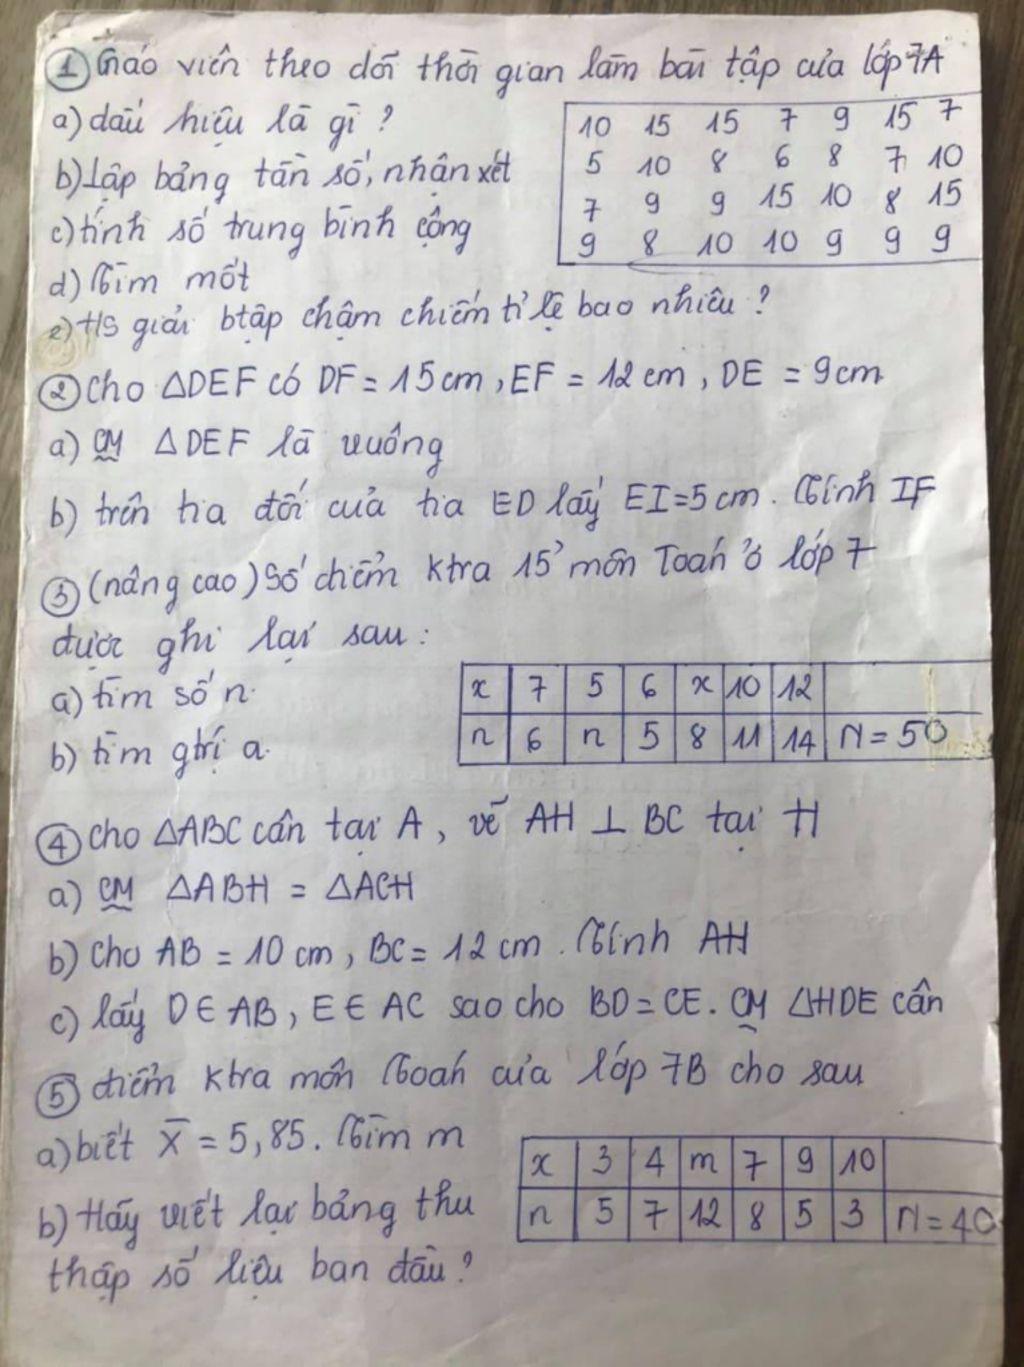 ① Giáo viên theo dõi thời gian làm bài tập của lớp 7A
a) dấu hiệu là gì ?
b) Lập bảng tần số, nhận xét
c) tính số trung bình cộng
d) Tìm mốt
e) HS giải btập chậm chiếm tỉ lệ bao nhiêu ?
10 15 15 7 9 15 7
5 10 8 6 8 7 10
7 9 9 15 10 8 15
9 8 10 10 9 9 9
② Cho △DEF có DF = 15 cm , EF = 12 cm , DE = 9 cm
a) CM △DEF là vuông
b) trên tia đối của tia ED lấy EI = 5 cm . Tính IF
③ (nâng cao) Số điểm ktra 15' môn Toán ở lớp 7
được ghi lại sau :
a) tìm số n.
b) tìm gtrị a.
x 7 5 6 x 10 12
n 6 n 5 8 11 14 N = 50
④ cho △ABC cân tại A , vẽ AH ⊥ BC tại H
a) CM △ABH = △ACH
b) Cho AB = 10 cm , BC = 12 cm . Tính AH
c) lấy D ∈ AB , E ∈ AC sao cho BD = CE . CM △HDE cân
⑤ điểm ktra môn Toán của lớp 7B cho sau
a) biết X̄ = 5,85 . Tìm m
b) Hãy viết lại bảng thu
thập số liệu ban đầu ?
x 3 4 m 7 9 10
n 5 7 12 8 5 3 N = 40